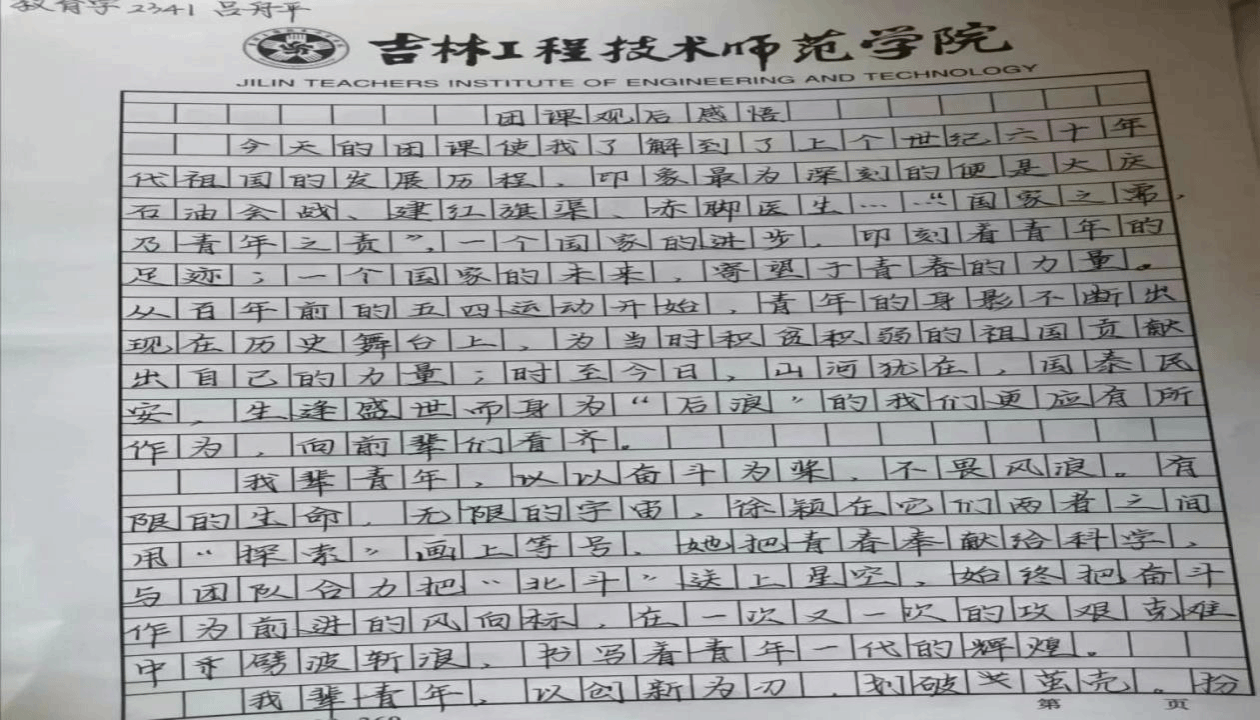 教育学2341 吕舟平
吉林工程技术师范学院
JILIN TEACHERS INSTITUTE OF ENGINEERING AND TECHNOLOGY
团课观后感悟
今天的团课使我了解到了上个世纪六十年
代祖国的发展历程，印象最为深刻的便是大庆
石油会战、建红旗渠、赤脚医生……“国家之需，
乃青年之责”，一个国家的进步，印刻着青年的
足迹；一个国家的未来，寄望于青春的力量。
从百年前的五四运动开始，青年的身影不断出
现在历史舞台上，为当时积贫积弱的祖国贡献
出自己的力量；时至今日，山河犹在，国泰民
安，生逢盛世而身为“后浪”的我们更应有所
作为，向前辈们看齐。
我辈青年，以以奋斗为桨，不畏风浪。有
限的生命，无限的宇宙，徐颖在它们两者之间
用“探索”画上等号，她把青春奉献给科学，
与团队合力把“北斗”送上星空，始终把奋斗
作为前进的风向标，在一次又一次的攻艰克难
中劈波斩浪，书写着青年一代的辉煌。
我辈青年，以创新为刃，划破茧壳。扮
第 页